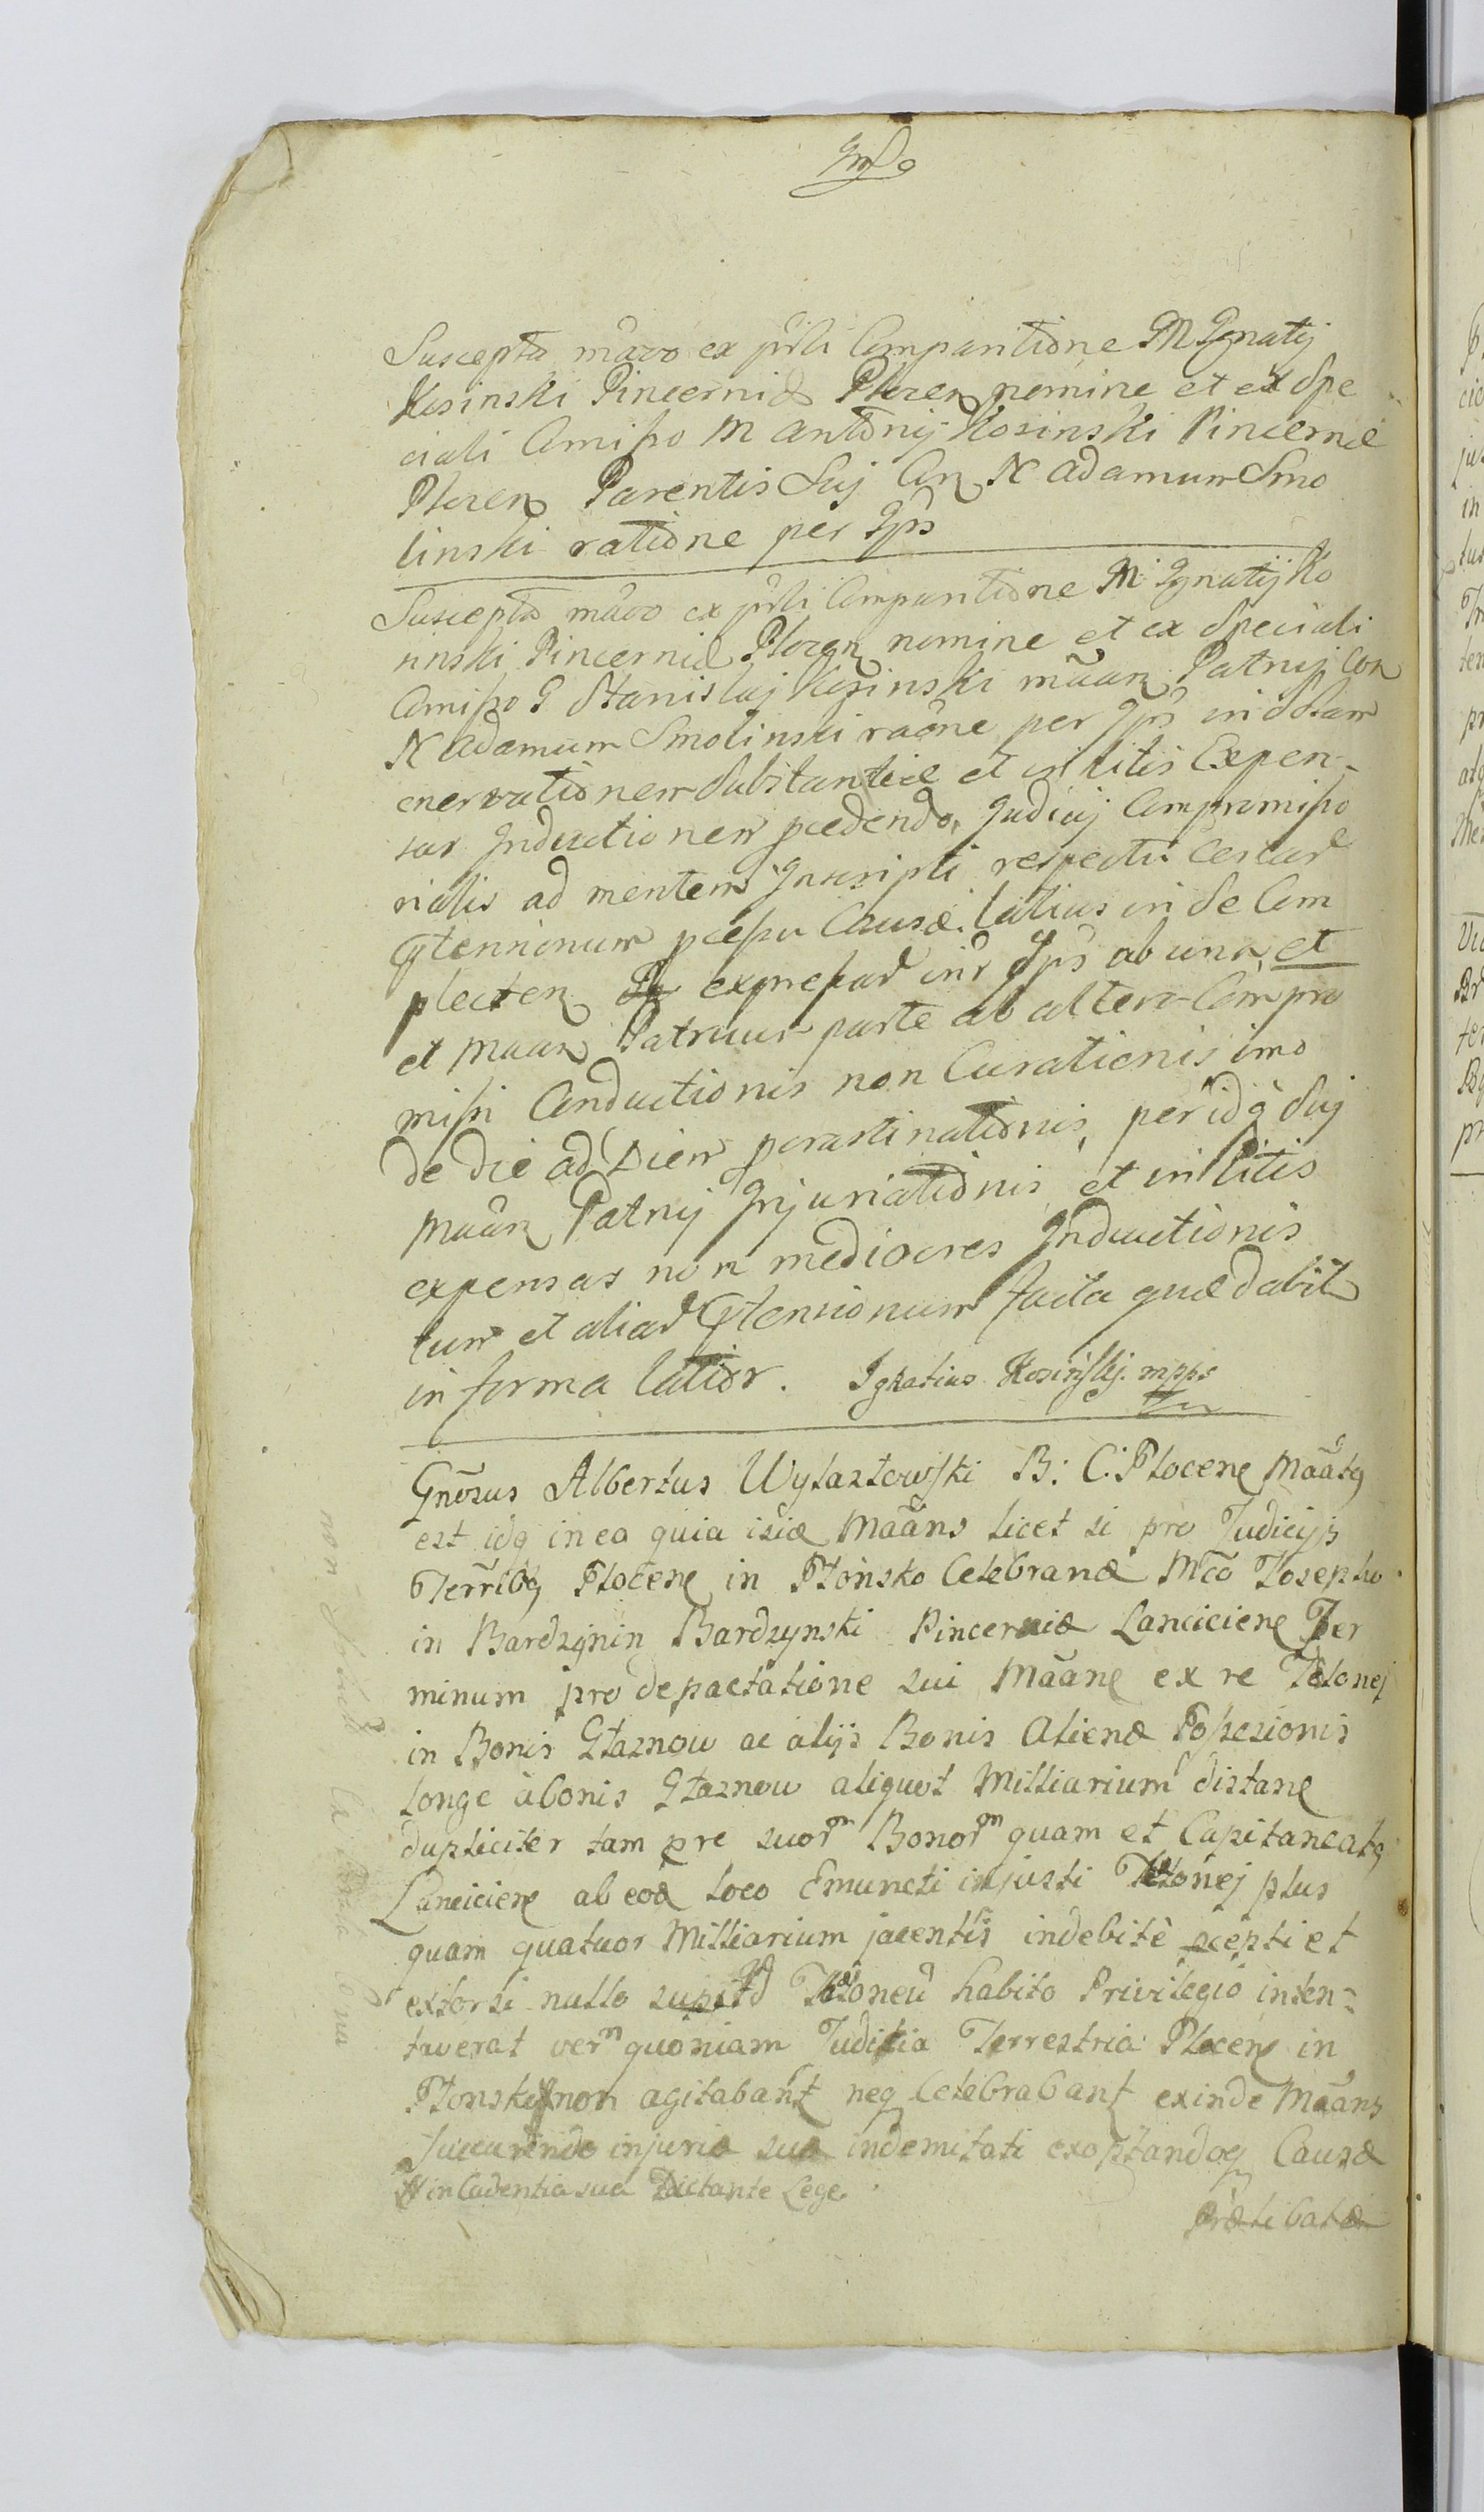 Suscepta mãvo ex pñli Comparitione M Ignatij
Kosinski Pincernid Plocen nomine et ex Spe
ciali Comisso M Antonij Kosinski Pincernæ
Plocen Parentis Suj Con N Adamum Smo
linski ratione per Ips
Suscepta mãvo ex pñli Comparitione M Ignatij Ko
sinski Pincernid Plocen nomine et ex Speciali
Comisso G Stanislaj Kosinski mãan Patruj Con
N Adamum Smolinski raõne per Ips in
enervationem Substantiæ et in litis Expen-
sas Inductionem pcedendo, Judicij Compromisso
rialis ad mentem Inscripti respectu
ptensionum pcessu Causæ latius inde Com
plecten ab una et
et Mãan Patruum parte ab altera Compro
missi Conductionis non Curationis imo
de die ad Diem porastinationis, per idq Suj
Mãan Patruj Injuriationis et in litis
expensas non mediocres Inductionis
tum et aliar ptensionum facta quæ dabit
in forma latior. Ignatius Kosinskj mpps
Gnõsus Albertus Wylaztowski B: C: Plocene Mãatq
est idq in ea quia isiæ Mãans licet si pro Judicijs
Terribq Plocene in Płońsko Celebrand Mco Josepho
in Bardzynin Bardzynski Pincernid Lanciciene Ter
minum pro depactatione sui Mãane ex re Telonej
in Bonis Głaznow ac alijs Bonis Alienæ Possesionis
longe abonis Głaznow aliquot Milliarium distane
dupliciter tam pre suorm Bonorm quam et Capitaneatq
Lanciciene ab eod loco Emuncti injusti Telonej plus
quam quatuor Milliarium jacentis indebitè pcepti et
extorsi nullo Teloneu habito Privilegio inten-
taverat verm quoniam Judicia Terrestria Plocene in
Płonsk non agitabant neq Celebrabant exinde Mãans
Succurendo injuriæ suæ indemitati exoptandoq Causæ
in Cadentia sua Dictante Lege
Prætibatæ